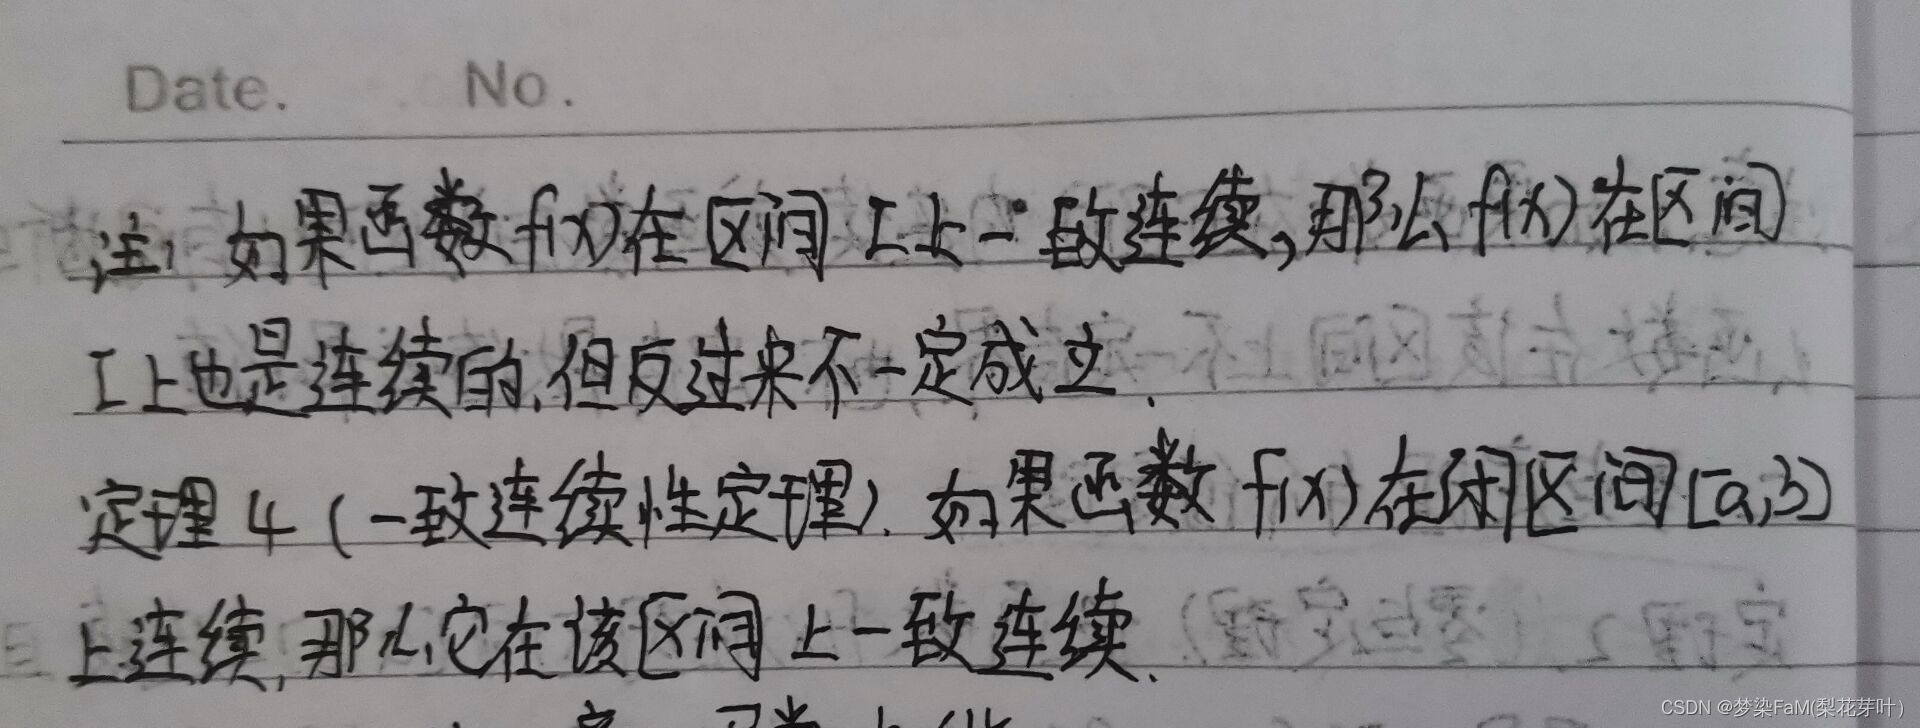 Date. No.
注, 如果函数f(x)在区间I上一致连续,那么f(x)在区间
I上也是连续的,但反过来不一定成立.
定理4(一致连续性定理).如果函数f(x)在闭区间[a,b]
上连续,那么它在该区间上一致连续.
CSDN @梦染FaM(梨花芽叶)